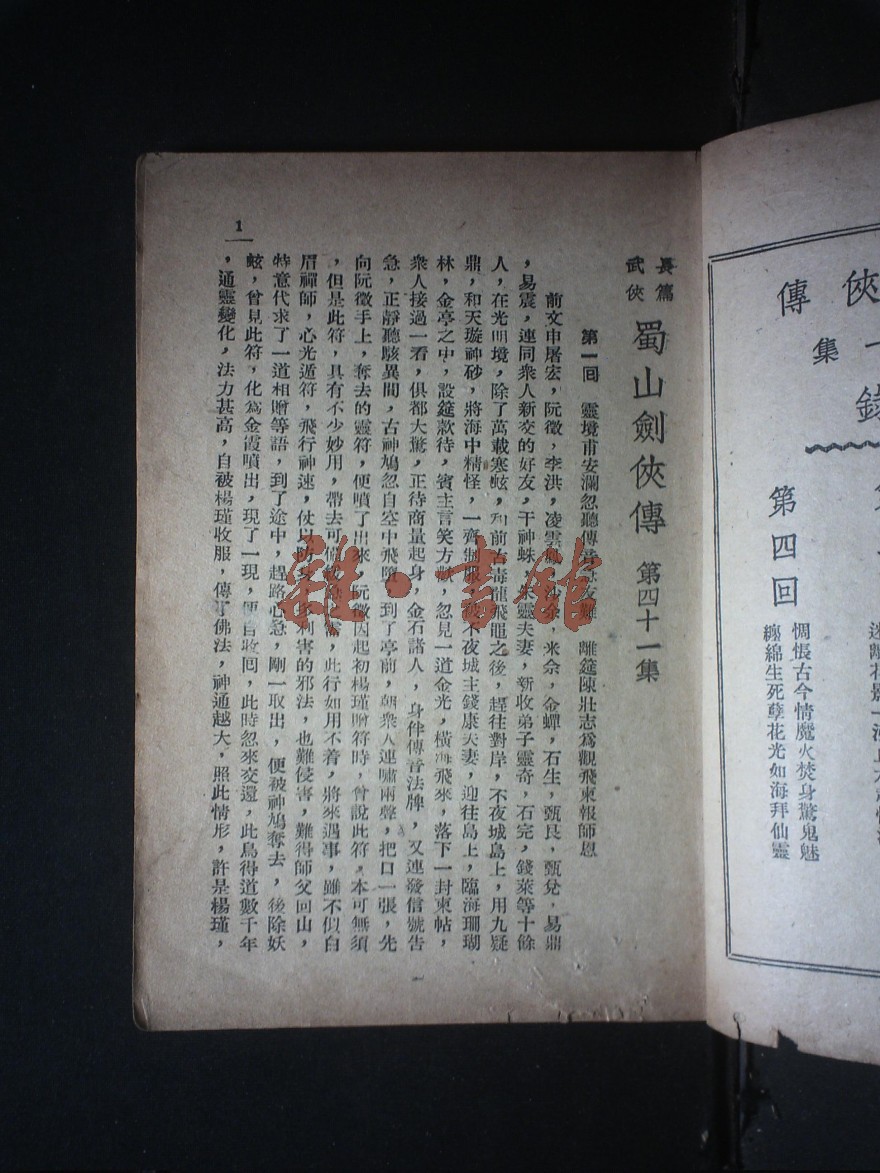 俠
傳
集
錄
第四回
惆悵古今情魔火焚身驚鬼魅
纏綿生死孽花光如海拜仙靈
長篇
武俠
蜀山劍俠傳 第四十一集
第一回 靈境甫安瀾忽聽傳音急友難 離筵陳壯志為觀飛柬報師恩
前文申屠宏，阮徵，李洪，凌雲鳳，沙余，米佘，金蟬，石生，甄艮，甄兌，易鼎
，易震，連同眾人新交的好友，干神蛛，朱靈夫妻，新收弟子靈奇，石完，錢萊等十餘
人，在光明境，除了萬載寒蚿，和前古毒龍飛黽之後，趕往對岸，不夜城島上，用九疑
鼎，和天璇神砂，將海中精怪，一齊制服，不夜城主錢康夫妻，迎往島上，臨海珊瑚
林，金亭之中，設筵款待，賓主言笑方歡，忽見一道金光，橫海飛來，落下一封柬帖，
眾人接過一看，俱都大驚，正待商量起身，金石諸人，身佩傳音法牌，又連發信號告
急，正靜聽駭異間，古神鳩忽自空中飛墮，到了亭前，朝眾人連嘯兩聲，把口一張，先
向阮徵手上，奪去的靈符，便噴了出來，阮徵因起初楊瑾贈符時，曾說此符，本可無須
，但是此符，具有不少妙用，帶去可備緩急之需，此行如用不着，將來遇事，雖不似白
眉禪師，心光遁符，飛行神速，仗以防身，多利害的邪法，也難侵害，難得師父回山，
特意代求了一道相贈等語，到了途中，趕路心急，剛一取出，便被神鳩奪去，後除妖
蚿，曾見此符，化為金霞噴出，現了一現，便自收回，此時忽來交還，此鳥得道數千年
，通靈變化，法力甚高，自被楊瑾收服，傳了佛法，神通越大，照此情形，許是楊瑾，
1
雜·書館